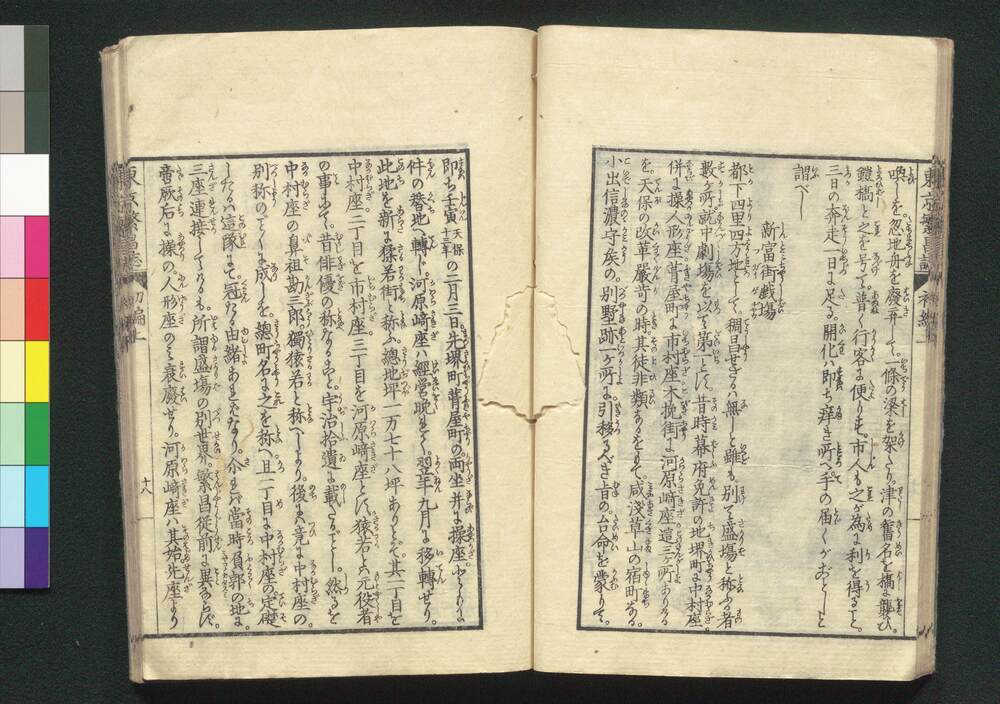 喚しを。忽地舟を廢弃して。一條の梁を架たり。津の舊名を攜え龔ひ
鎧橋と之を号て。普く行客に便りす。市人も之が為に利を得ると。
三日の奔走一日に足る。開化即ち痒き所へ手の届くがごとしと
謂べし
新富街戯塲
都下四里四方地として。稠旦せざるハ無しと雖も。別て盛塲と称ふる者
數ヶ所。就中劇塲を以て第一とす。昔時幕府免許の地堺町に中村座
併に操人形座。葺屋町に市村座木挽街に河原﨑座這三ヶ所にありける
を。天保の改革嚴苛の時其徒非類あるをもて。咸淺草山の宿町なる。
小出信濃守矦の。別墅一跡一ヶ所に引移るべき旨の台命を蒙りて。
即ち壬寅天保十三年の二月三日。先堺町葺屋町の両坐并に操座ひとしく
件の替地へ轉じ。河原﨑座ハ經營晩くして。翌年九月に移轉せり。
此地を新に猿若街と称ふ。總地坪一万七十八坪ありとぞ。其一丁目を
中村座二丁目を市村座三丁目を河原﨑座とす。猿若とハ元役者
の事にて。昔俳優の称なるよしを。宇治拾遺に載たるよし。然るを
中村座の鼻祖勘三郎。獨猿若と称へしより。後にハ竟に中村座の。
別称のごとく成しを。總町名に之を称へ。且一丁目に中村座の定礎
三座連接してなるも。所謂盛塲の別世界。繁昌従前に異ならず。
竒厥右に操の。人形座のミ衰癈せり。河原﨑座ハ其始先座より
東京繁昌誌
初編
十八